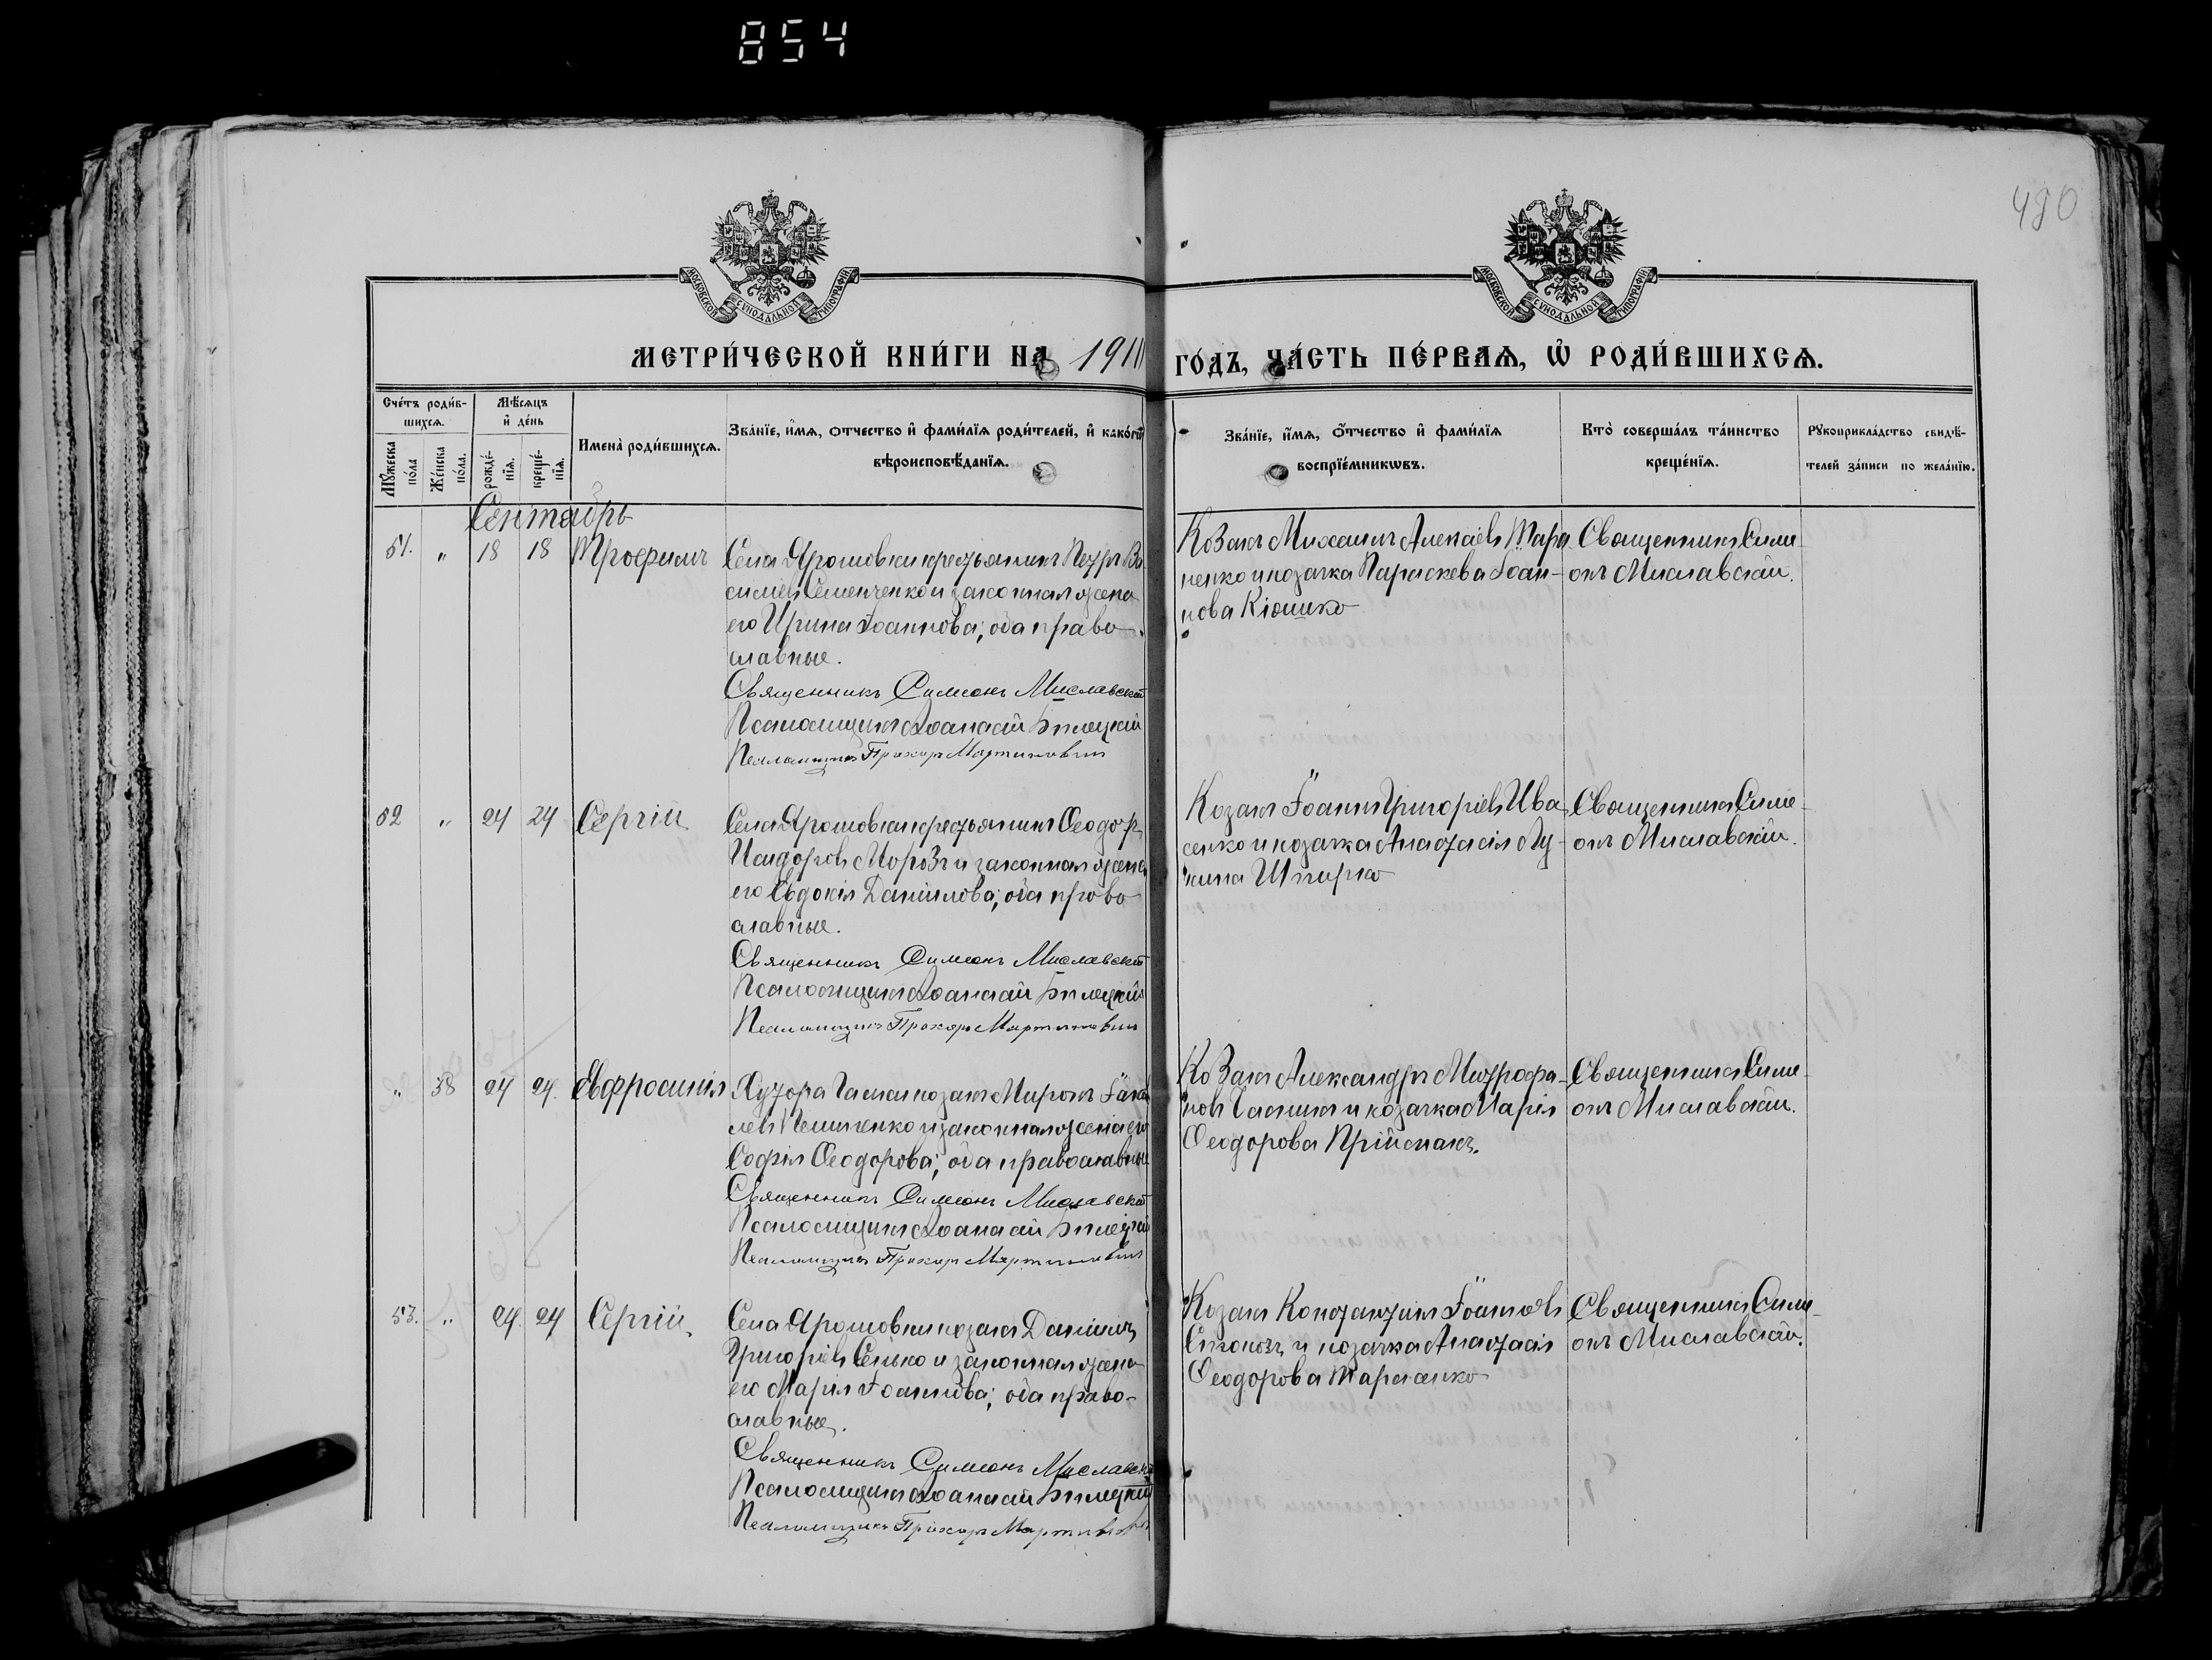 854
480
МОСКОВСКОЙ СУНОДАЛЬНОЙ ТИПОГРАФІИ
МОСКОВСКОЙ СУНОДАЛЬНОЙ ТИПОГРАФІИ
МЕТРИ́ЧЕСКОЙ КНИ́ГИ НА 1911 ГО́ДЪ, ЧА́СТЬ ПЕ́РВАЯ, Ѡ҆ РОДИ́ВШИХСѦ.
Сче́тъ роди́в-
шихсѧ.
Мѣ́сѧцъ
и҆ де́нь
Мꙋ́жеска
по́ла
Же́нска
по́ла.
рожде́-
нїѧ.
креще́-
нїѧ.
Имена̀ роди́вшихсѧ.
Зва́нїе, и҆́мѧ, отчество и҆ фами́лїѧ роди́телей, и҆ како́гѡ
вѣроисповѣ́данїѧ.
Зва́нїе, и҆́мѧ, о҆́тчество и҆ фами́лїѧ
воспрїе́мникѡвъ.
Кто̀ соверша́лъ та́инство
креще́нїѧ.
Рꙋкоприкла́дство свидѣ́-
телей за́писи по жела́нїю.
Сентябрь
51. " 18 18 Трофимъ
Села Ярошовки крестьянинъ Петръ Ва-
силіевъ Семенченко и законная жена
его Ирина Іоаннова; оба право-
славные.
Священникъ Симеонъ Миславскій
Псаломщикъ Аѳанасій Билецкій
Псаломщикъ Прохоръ Мартиновичъ
Козакъ Михаилъ Алексіевъ Тара-
ненко и козачка Параскева Іоан-
нова Кіяшко
Священникъ Симе-
онъ Миславскій.
52 " 24 24 Сергій
Села Ярошовки крестьянинъ Ѳеодоръ
Исидоровъ Морозъ и законная жена
его Евдокія Даніилова; оба право-
славные.
Священникъ Симеонъ Миславскій
Псаломщикъ Аѳанасій Билецкій
Псаломщикъ Прохоръ Мартиновичъ
Козакъ Іоаннъ Григоріевъ Ива-
сенко и козачка Анастасія Лу-
кина Шпирко
Священникъ Симе-
онъ Миславскій.
" 38 24 24. Евфросинія
Хутора козакъ Миронъ
и законная жена его
Софія Ѳеодорова; оба православные
Священникъ Симеонъ Миславскій
Псаломщикъ Аѳанасій Билецкій
Псаломщикъ Прохоръ Мартиновичъ
Козакъ Александръ Митрофа-
новъ и козачка Марія
Ѳеодорова Пріймакъ.
Священникъ Симе-
онъ Миславскій.
53. " 24. 24 Сергій
Села Ярошовки козакъ Даніилъ
Григоріевъ Сенько и законная жена
его Марія Іоаннова; оба право-
славные.
Священникъ Симеонъ Миславскій
Псаломщикъ Аѳанасій Билецкій
Псаломщикъ Прохоръ Мартиновичъ
Козакъ Константинъ Іоанновъ
и козачка Анастасія
Ѳеодорова Тарасенко
Священникъ Симе-
онъ Миславскій.